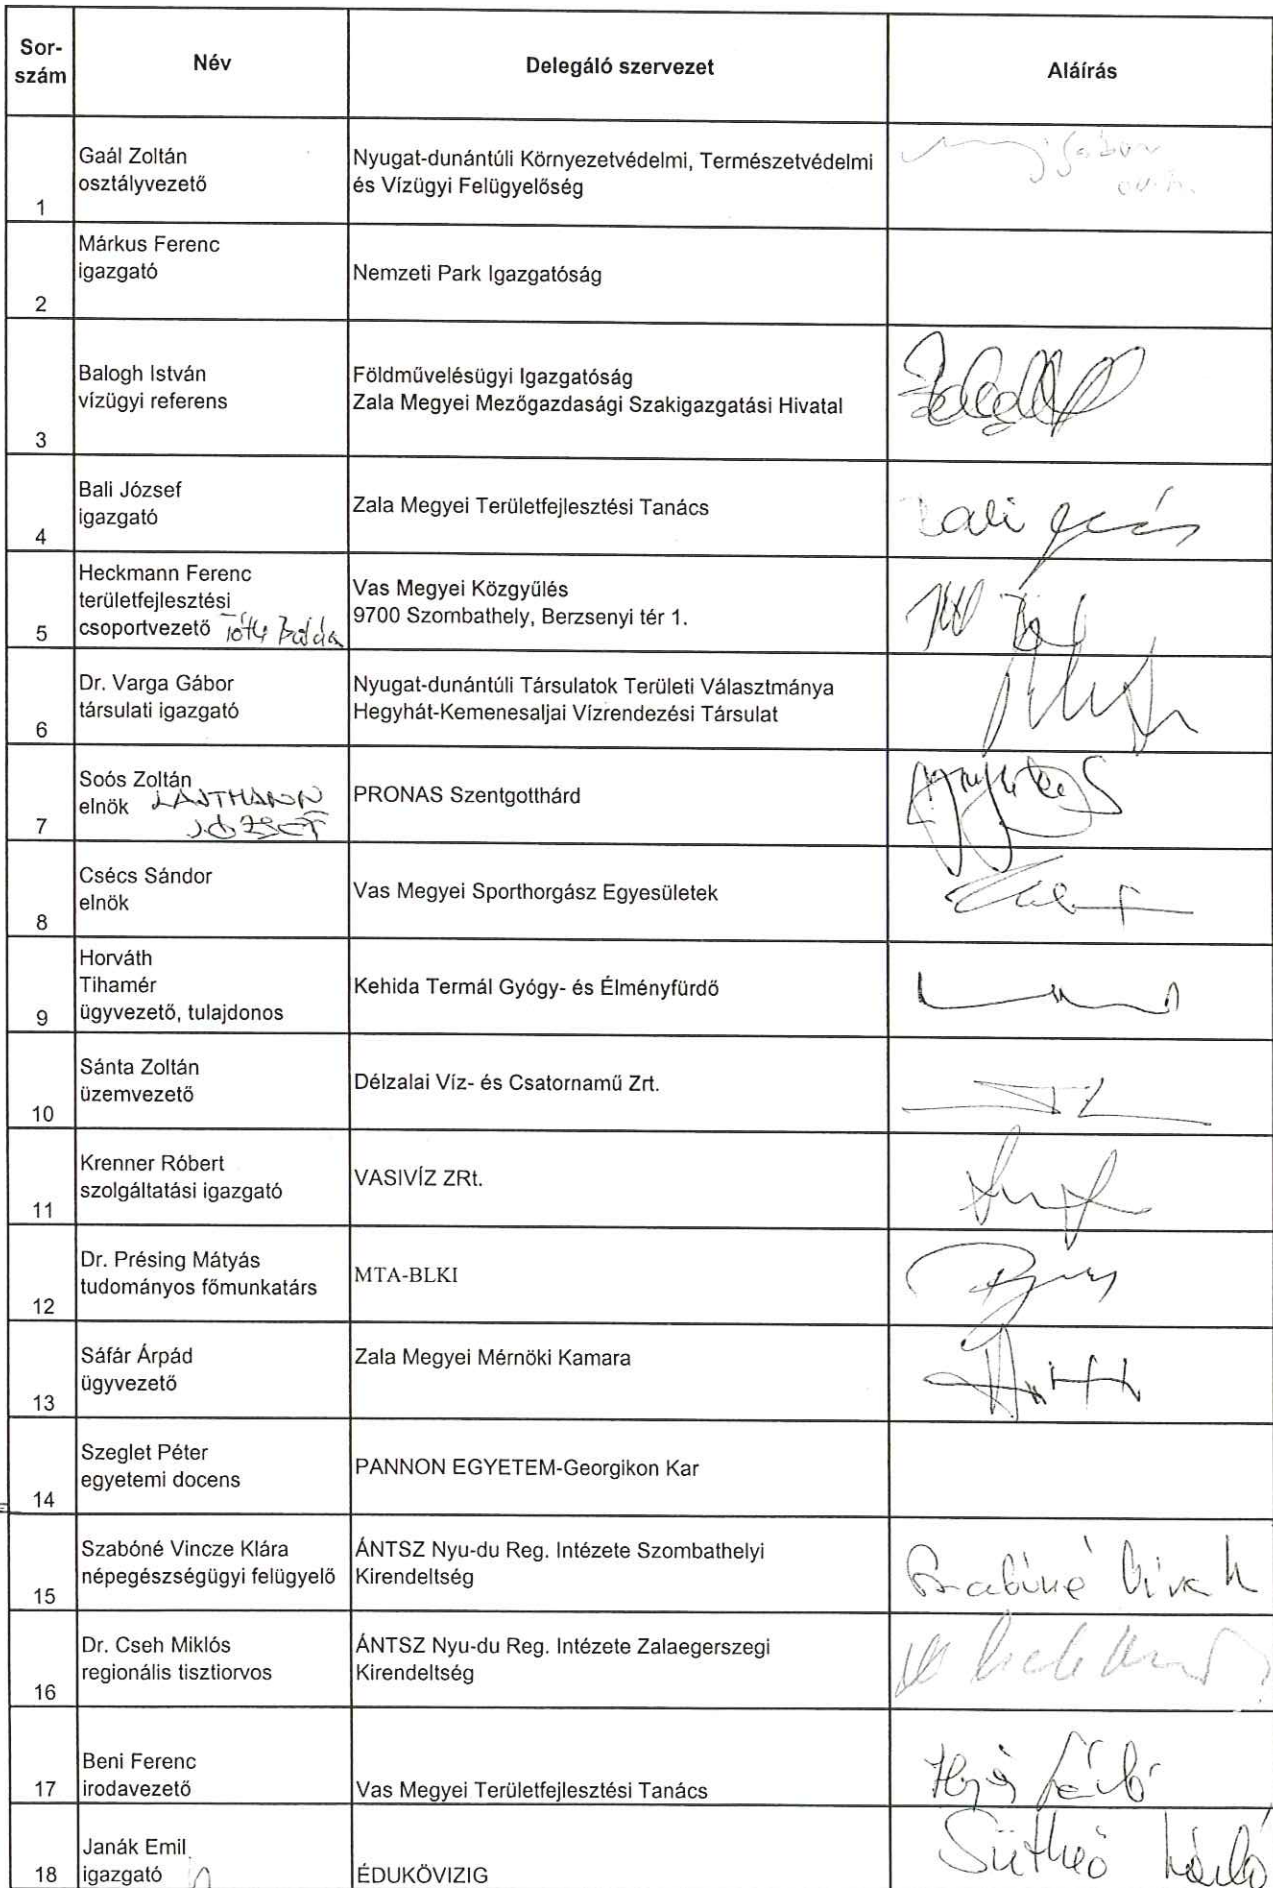 Sor-
szám
Név
Delegáló szervezet
Aláírás
1
Gaál Zoltán
osztályvezető
Nyugat-dunántúli Környezetvédelmi, Természetvédelmi
és Vízügyi Felügyelőség
2
Márkus Ferenc
igazgató
Nemzeti Park Igazgatóság
3
Balogh István
vízügyi referens
Földművelésügyi Igazgatóság
Zala Megyei Mezőgazdasági Szakigazgatási Hivatal
4
Bali József
igazgató
Zala Megyei Területfejlesztési Tanács
Bali
5
Heckmann Ferenc
területfejlesztési
csoportvezető Tóth
Vas Megyei Közgyűlés
9700 Szombathely, Berzsenyi tér 1.
6
Dr. Varga Gábor
társulati igazgató
Nyugat-dunántúli Társulatok Területi Választmánya
Hegyhát-Kemenesaljai Vízrendezési Társulat
7
Soós Zoltán
elnök LAJTMANN
JÓZSEF
PRONAS Szentgotthárd
8
Csécs Sándor
elnök
Vas Megyei Sporthorgász Egyesületek
9
Horváth
Tihamér
ügyvezető, tulajdonos
Kehida Termál Gyógy- és Élményfürdő
10
Sánta Zoltán
üzemvezető
Délzalai Víz- és Csatornamű Zrt.
11
Krenner Róbert
szolgáltatási igazgató
VASIVÍZ ZRt.
12
Dr. Présing Mátyás
tudományos főmunkatárs
MTA-BLKI
13
Sáfár Árpád
ügyvezető
Zala Megyei Mérnöki Kamara
14
Szeglet Péter
egyetemi docens
PANNON EGYETEM-Georgikon Kar
15
Szabóné Vincze Klára
népegészségügyi felügyelő
ÁNTSZ Nyu-du Reg. Intézete Szombathelyi
Kirendeltség
Szabóné
16
Dr. Cseh Miklós
regionális tisztiorvos
ÁNTSZ Nyu-du Reg. Intézete Zalaegerszegi
Kirendeltség
17
Beni Ferenc
irodavezető
Vas Megyei Területfejlesztési Tanács
18
Janák Emil
igazgató
ÉDUKÖVIZIG
Sütheő László